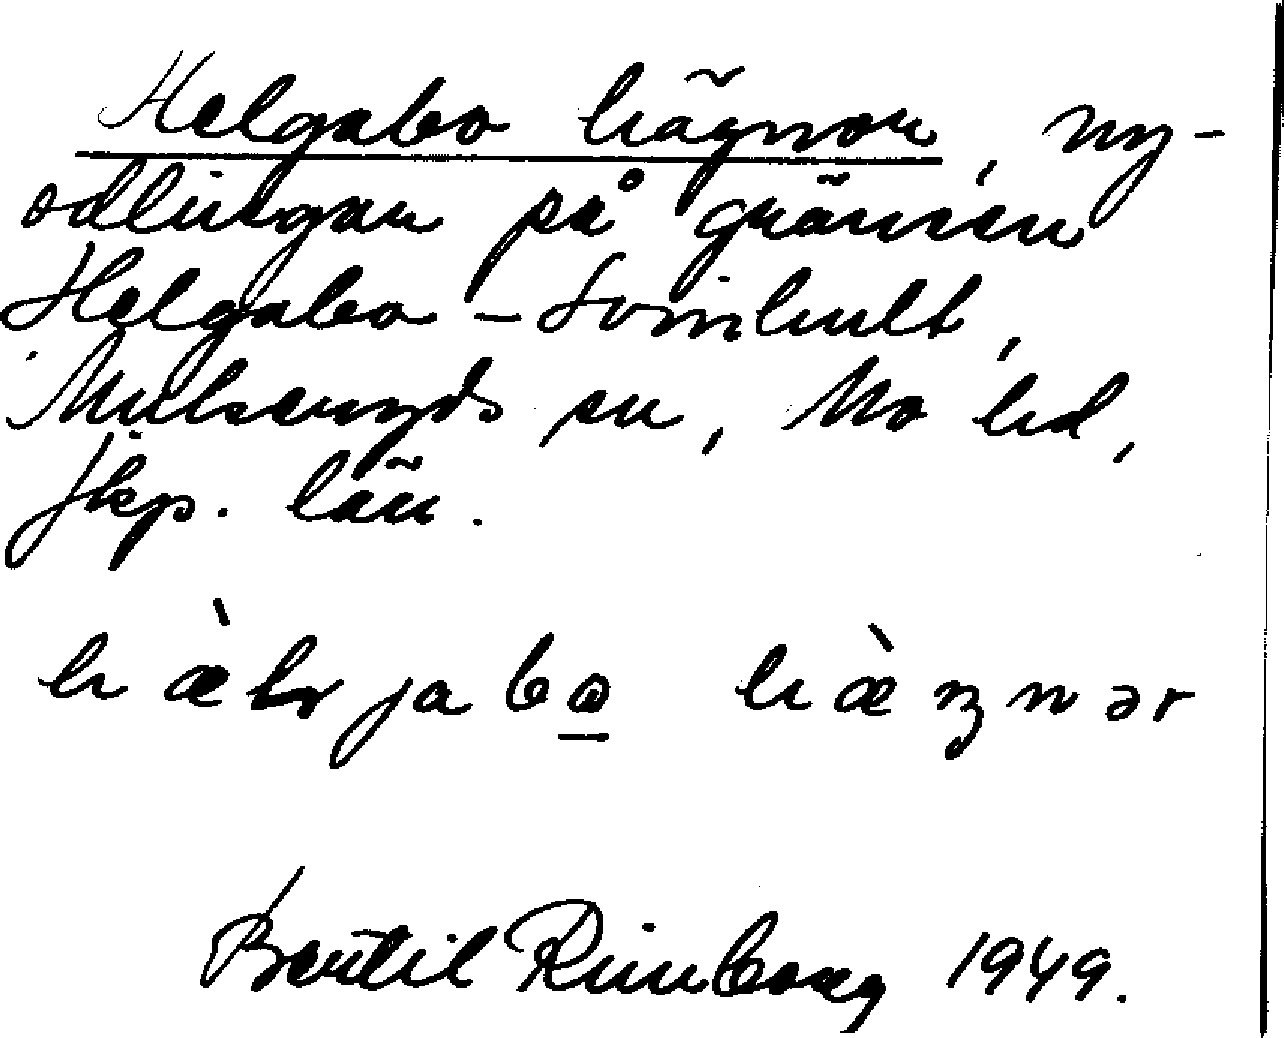 Helgabo hägnor, ny-
odlingar på gränsen
Helgabo - Svinhult,
Mulseryds sn, Mo hd,
Jkp. län.
hæ̀lrjabo hæ̀ŋnər
Bertil Rimborg 1949.